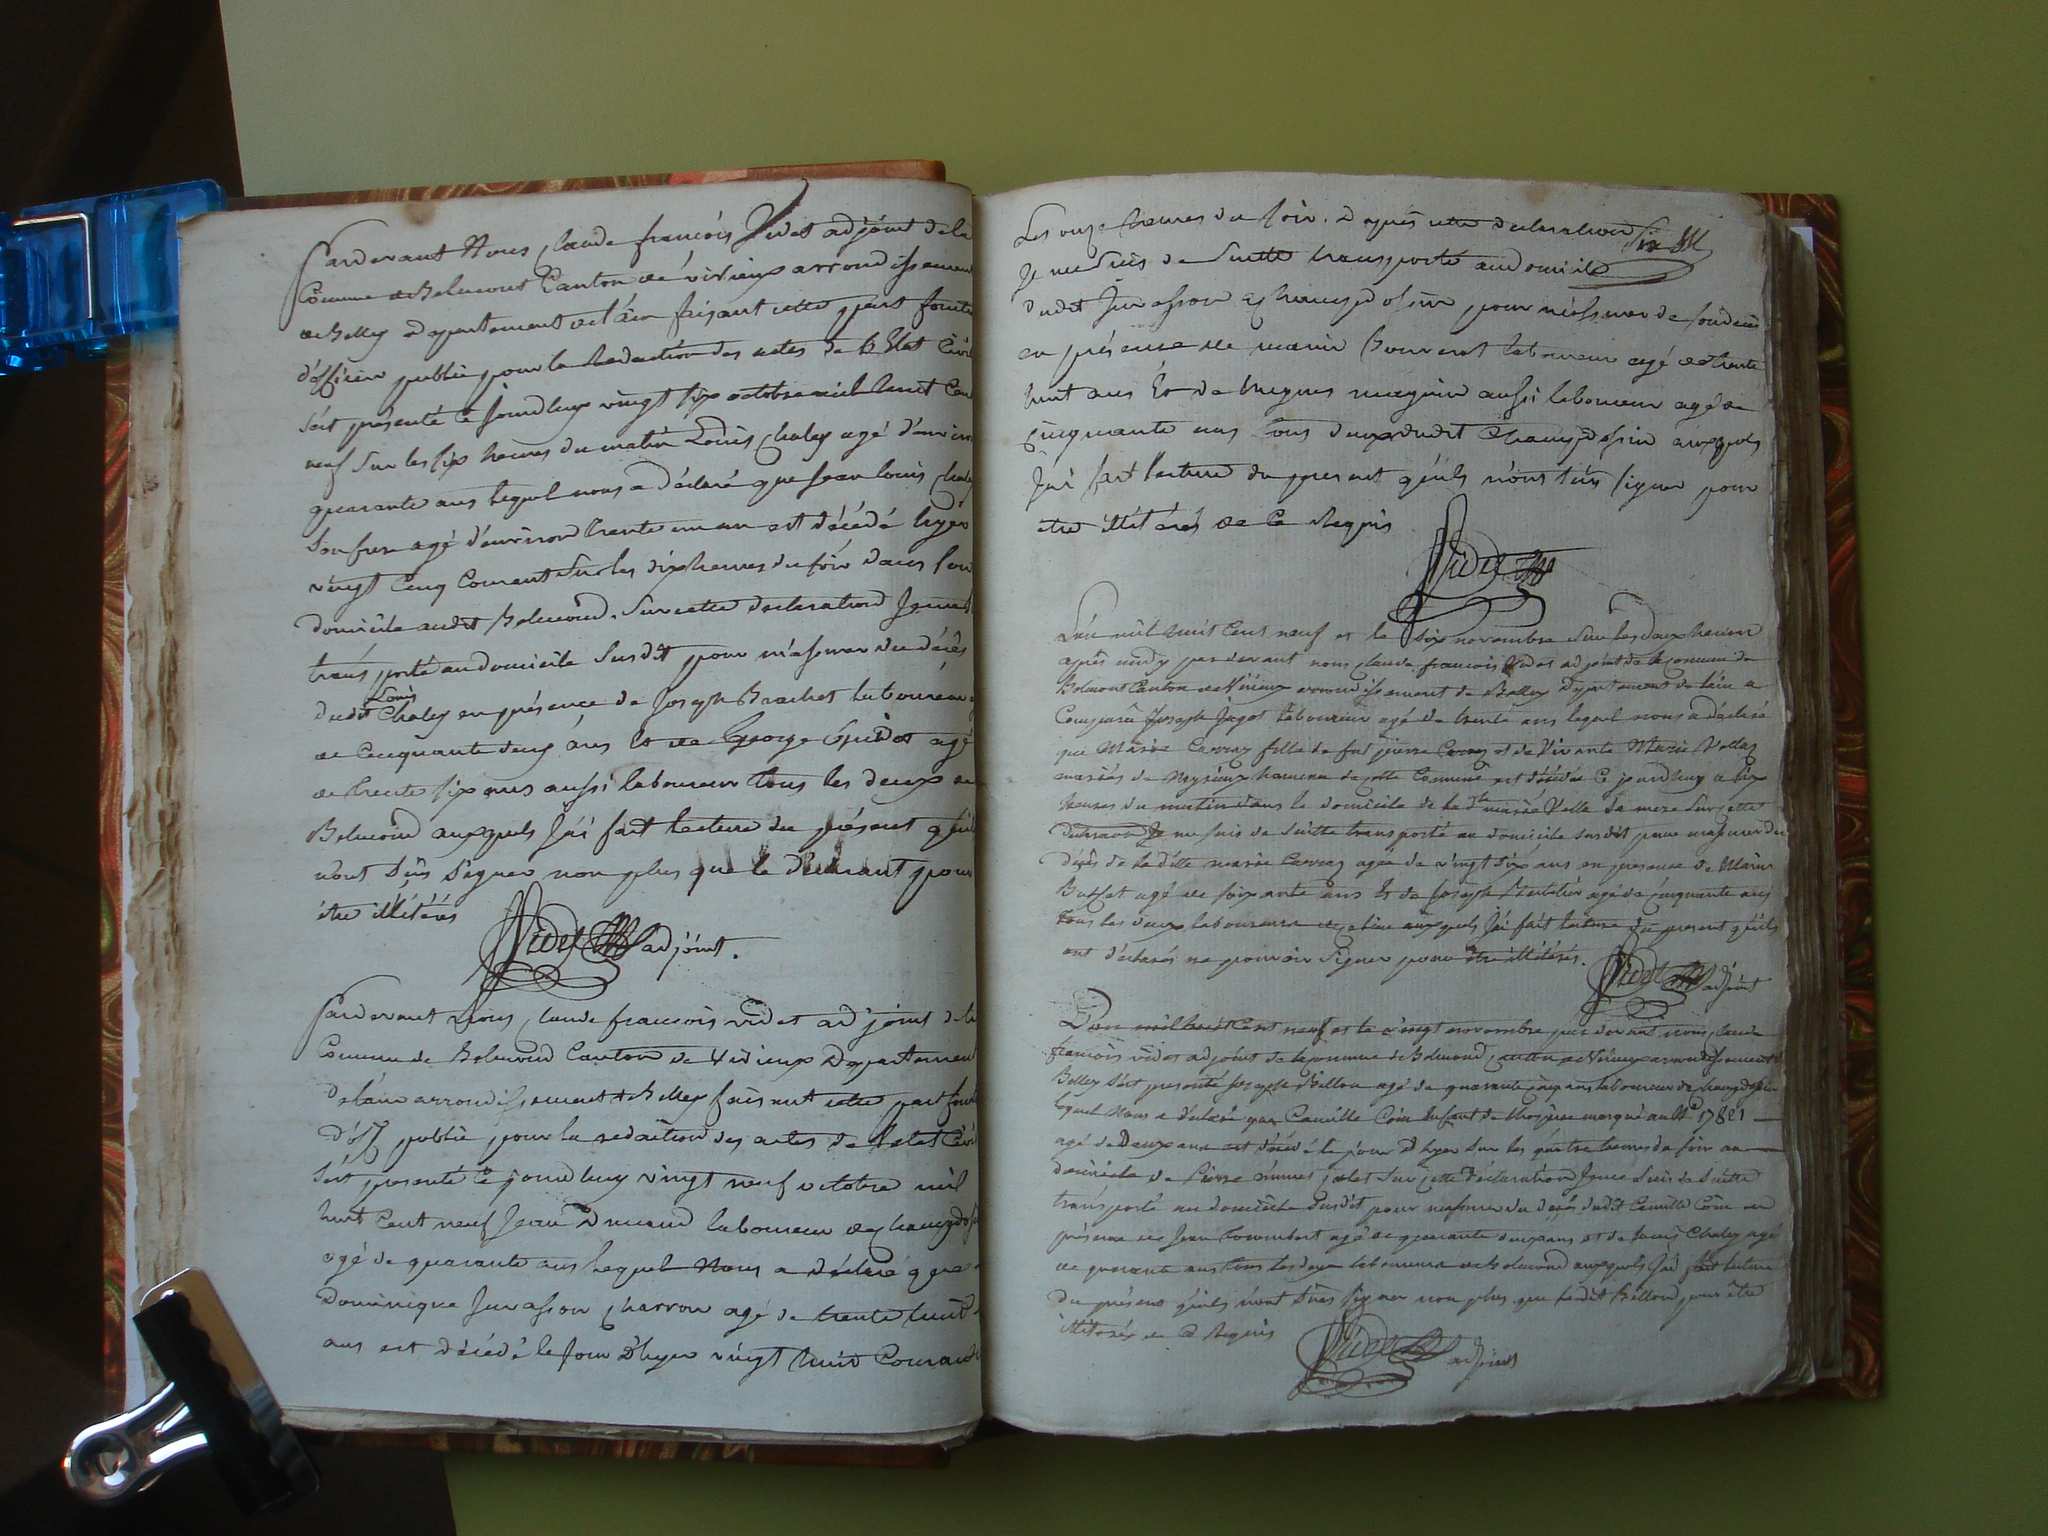 Pardevant Nous Claude françois Videt adjóint de la
Cómmune de Belmont Canton de virieux arrondissement
de Belley département de l'ain faisant cette part fonctio
d'officier public pour la Redaction des actes de l'Etat Civil
s'est présenté Ce jourdhuy vingt six octobre mil huit Cent
neuf Sur les six heures du matin Loüis Chaley agé d'environ
quarante ans lequel nous a déclaré que jean louis Chaley
Son frere agé d'environ trente un an est décédé hyer
vingt Cinq Courant Sur les dix heures du soir dans son
domicile audit Belmond. Sur cette declaration Je me suis
trans porté au domicile Susdit pour m'assurer du décès
dudit Louis Chaley en présence de Joseph Brachet laboureur agé
de Cinquante deux ans Et de George Guidot agé
de trente six ans aussi laboureur tous les deux de
Belmond auxquels J'ai fait lecture du présent qu'ils
n'ont Sçus Signer non plus que le déclarant pour
être illitérés
Videt adjóint.
Pardevant Nous Claude françois videt adjoint de la
Commune de Belmond Canton de Virieux Département
de l'ain arrondissement de Belley faisant cette part fonct
d'off public pour la redaction des actes de l'etat Civil
s'est presenté Ce jourdhuy vingt neuf octobre mil
huit Cent neuf Jean laboureur de champdossin
agé de quarante ans Lequel Nous a déclaré que
Dominique Jurasson Charron agé de trente huit
ans est décédé le Jour D'hyer vingt huit Courant
Les onze heures du soir. D'après cette declaration
Je me suis de Suitte transporté au domicile
dudit Jurasson a champdossin pour m'assurer de son decès
en présence de marin Bouvent laboureur agé de trente
huit ans Et de hugues maguin aussi laboureur agé de
Cinquante ans Tous deux dudit Champdossin auxquels
J'ai fait lecture du present qu'ils n'ont sçus signer pour
etre illitérés de Ce Requis
Videt
L'an mil huit Cent neuf et le six novembre Sur les deux heures
après midy pardevant nous Claude françois Videt adjoint de la commune de
Belmont Canton de Virieux arrondissement de Belley Département de l'ain a
Comparu Joseph Jagot laboureur agé de trente ans lequel nous a déclaré
que Marie Carraz fille de feu pierre Carraz et de Vivante Marie Vollaz
mariés de hameau de cette Commune est décédée Ce jourdhuy a six
heures du matin dans le domicile de la d.te marie Volle sa mere Sur cette
Je me suis de Suitte transporté au domicile susdit pour m'assurer du
décès de la ditte marie Carraz agée de vingt dix ans en presence de Marin
Buffet agé de soixante ans Et de Joseph agé de Cinquante ans
tous les deux laboureurs auxquels J'ai fait lecture du present qu'ils
ont déclarés ne pouvoir Signer pour être illitérés.
Videt adjoint
L'an mil huit Cent neuf et le vingt novembre par devant nous Claude
françois videt adjoint de la commune de Belmond Canton de Virieux arrondissement
Belley s'est presenté joseph Billon agé de quarante cinq ans laboureur de Champdossin
lequel Nous a déclaré que Camille Côme Enfant de l'hospice marqué au N.o 17821
agé de Deux ans est décédé le jour D'hyer Sur les quatre heures du soir au
domicile de Pierre Sur cette Déclaration Je me Suis de Suitte
transporté au domicile Susdit pour m'assurer du décès dudit Camille Côme en
présence de Jean agé de quarante deux ans et de Louis Chaley agé
de quarante ans tous les deux laboureurs de Belmond auxquels J'ai fait lecture
du présent qu'ils n'ont Sçus Signer non plus que ledit Billon pour être
illitérés de ce Requis
Videt adjoint